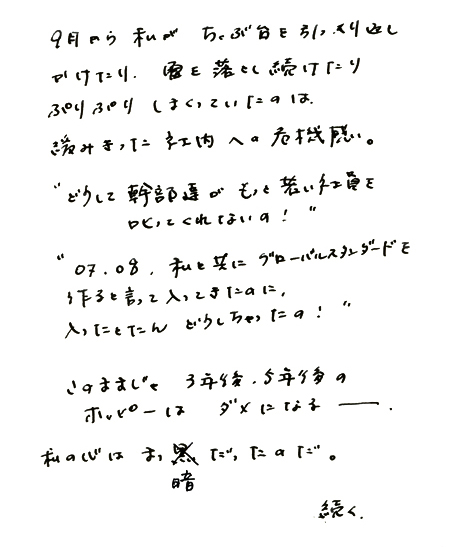 9月から 私が ちゃぶ台を引っくり返し
かけたり、雷を落とし続けたり
ぷりぷり しまくっていたのは、
緩みきった社内への危機感。
"どうして 幹部達が もっと若い社員を
叱ってくれないの！"
"07.08. 私と共に グローバルスタンダードを
作ると言って入ってきたのに、
入ったとたん どうしちゃったの！"
このままじゃ 3年後、5年後の
ホッピーは ダメになる ──.
私の心は まっ黒だったのだ。
暗
続く.